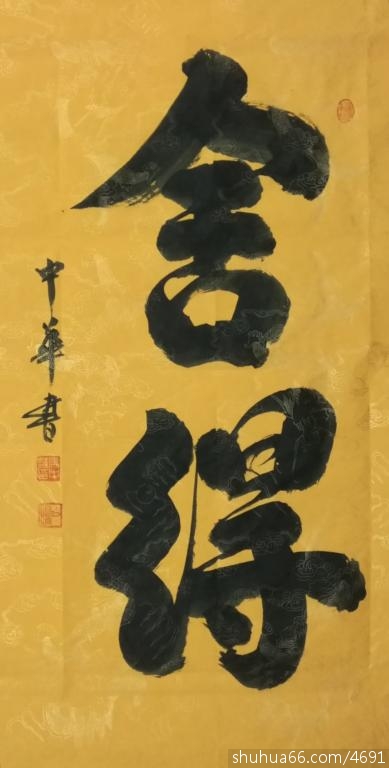 舍得
中華書
shuhua66.com/4691